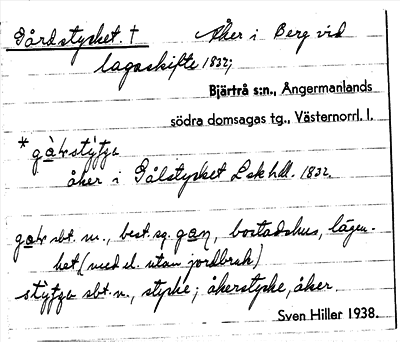 Gårdstycket. † Åker i Berg vid
lagaskifte 1832;
Bjärtrå s:n., Ångermanlands
södra domsagas tg., Västernorrl. l.
åker i Gålstycket Lskhll. 1832.
sbt. m., best. sg. bostadshus, lägen-
het (med el. utan jordbruk)
sbt. n., stycke; åkerstycke, åker.
Sven Hiller 1938.